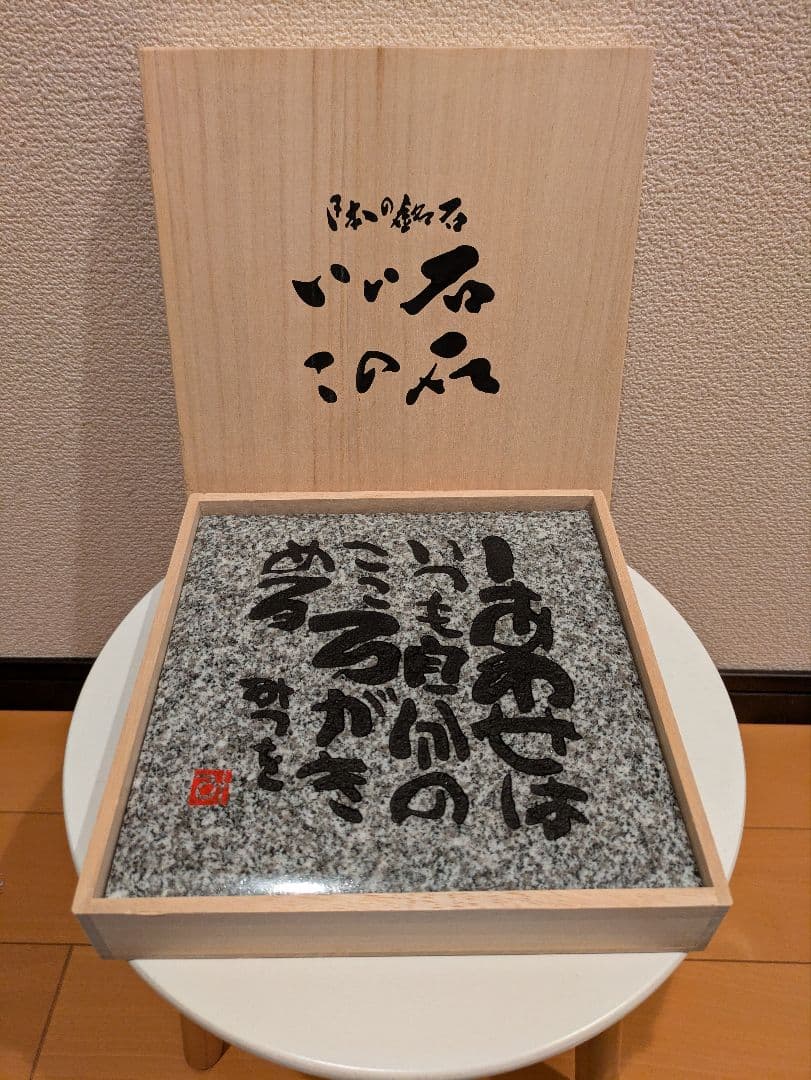 日本の銘石
いい石
この石
しあわせは
いつも自分の
こころがき
める
みつを